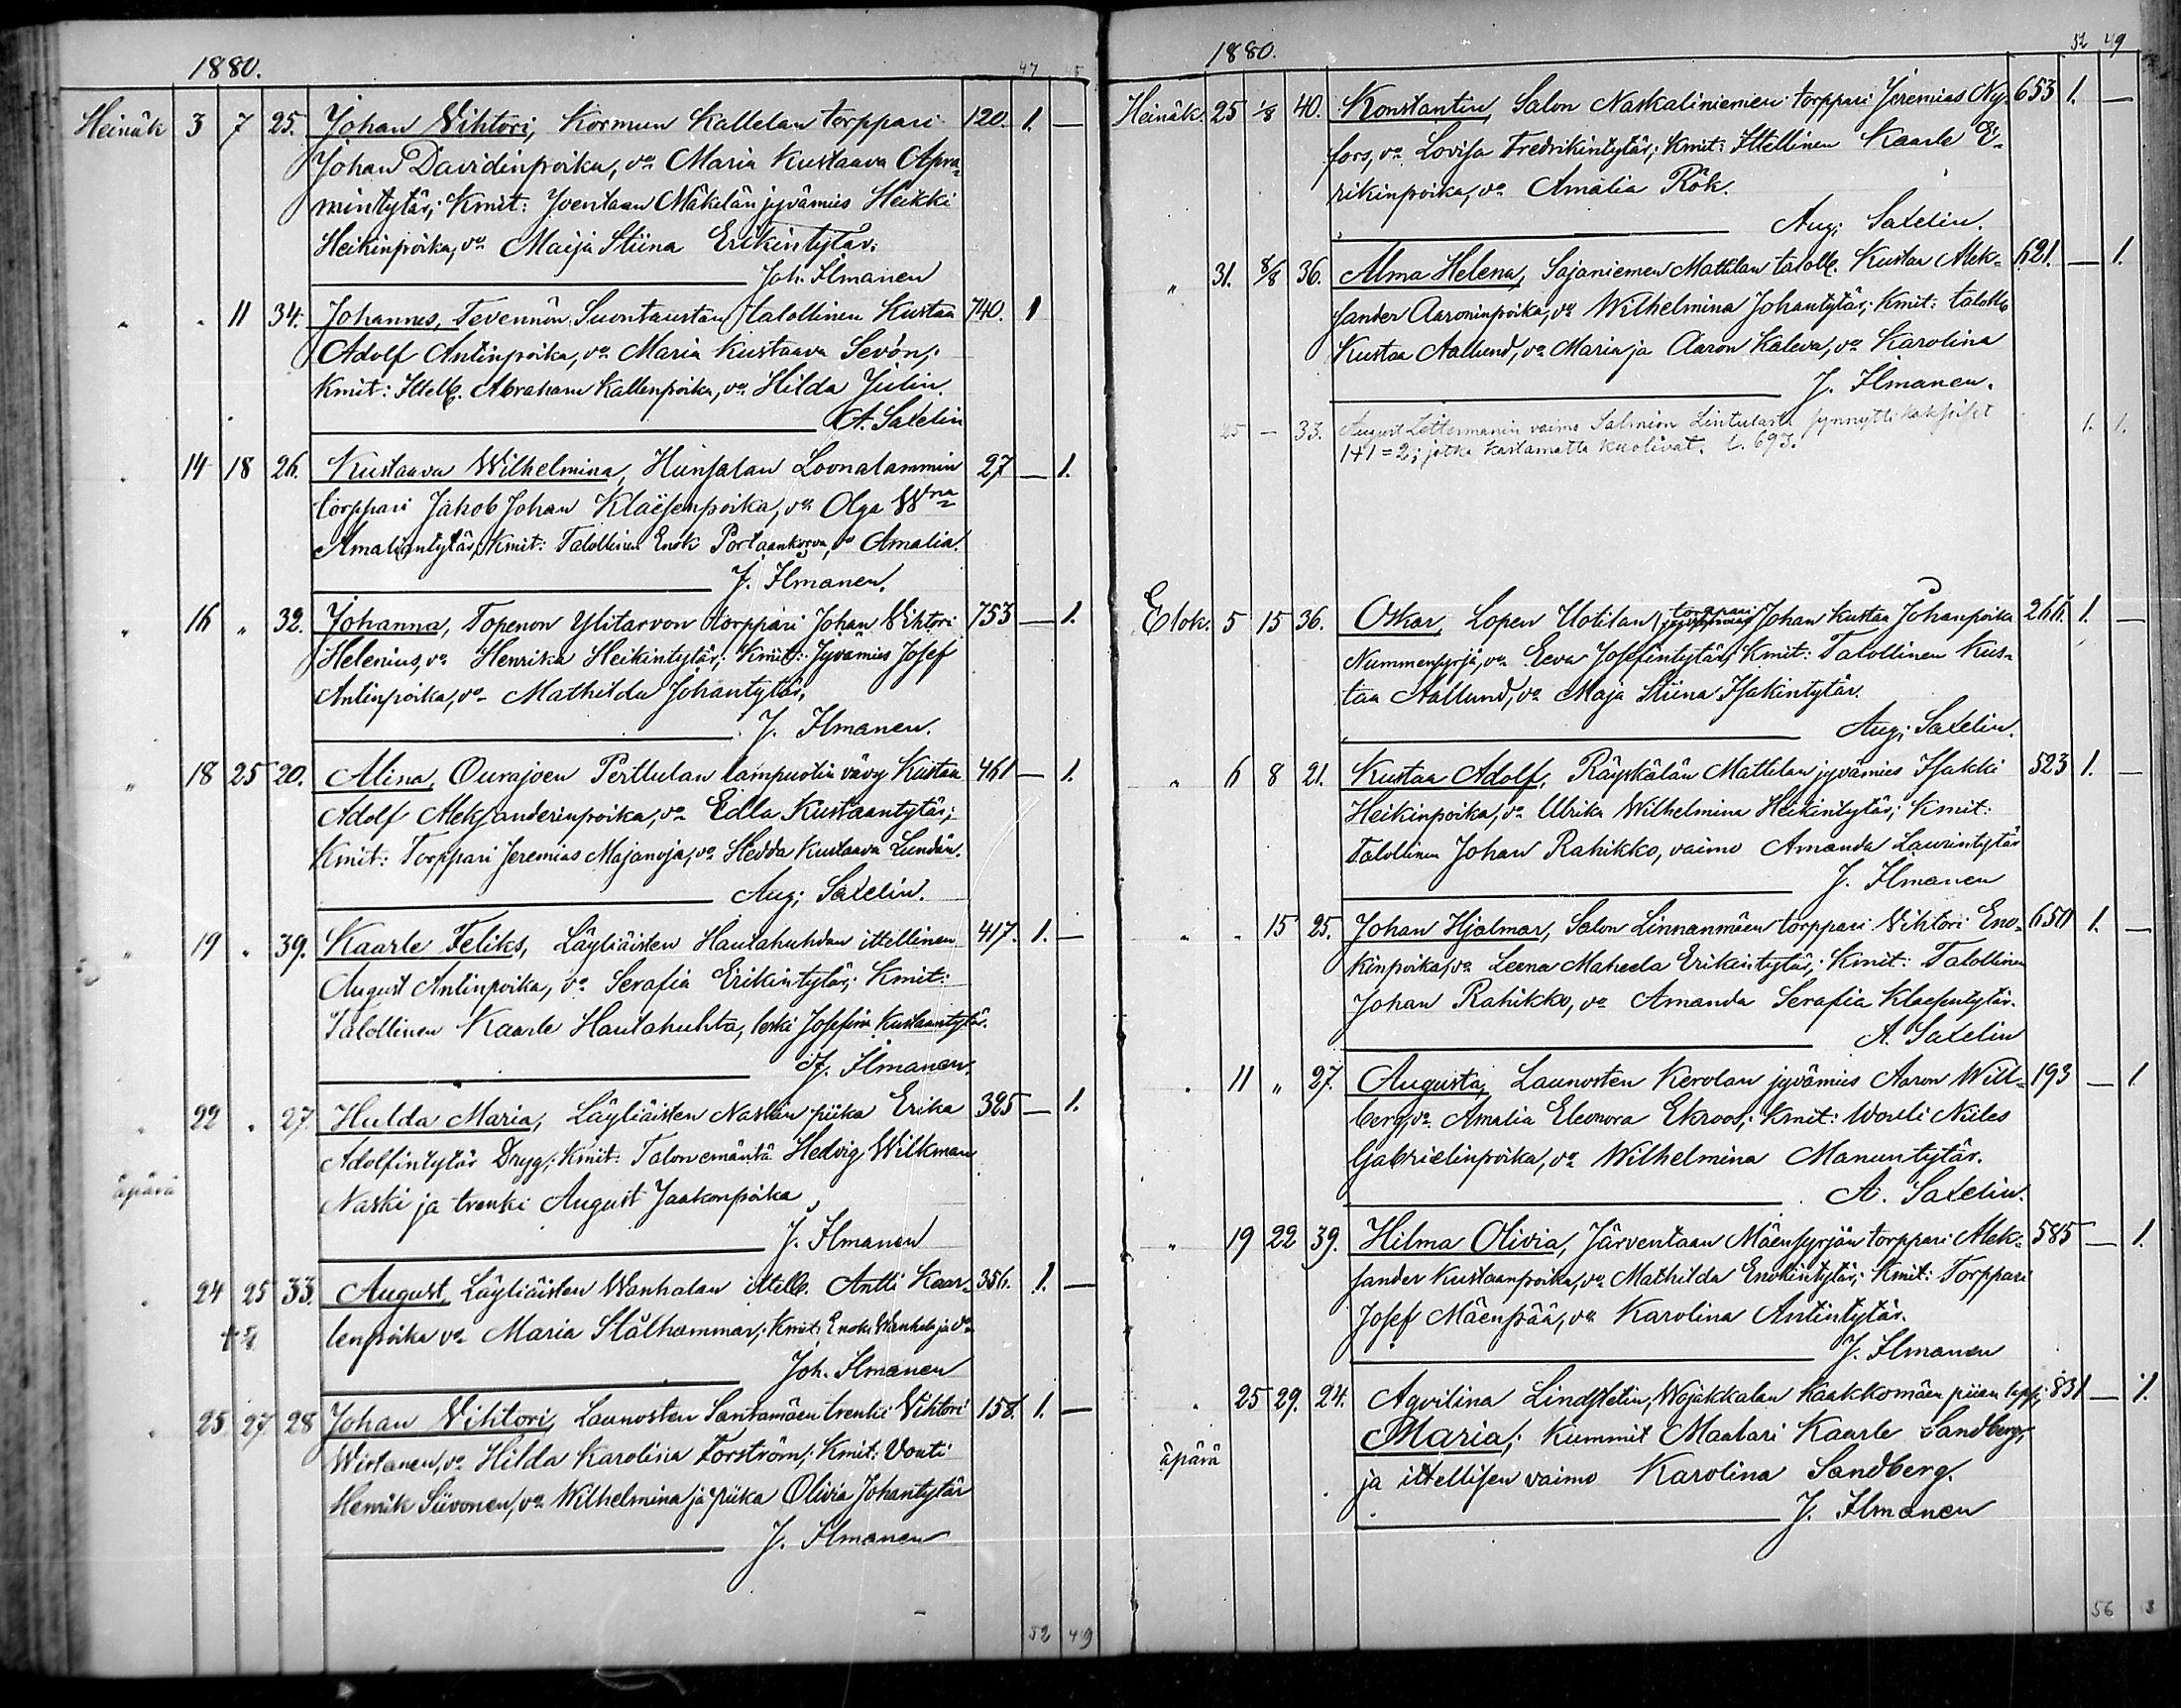 1880. 47
Heinäk 3 7 25. Johan Vihtori, Kormun Kallelan torppari 120. 1. —
Johan Davidinpoika, vo Maria Kustaava Apra-
mintytär; Kmit: Joentaan Mäkelän jyvämies Heikki
Heikinpoika, vo Maija Stiina Erikintytär.
Joh. Ilmanen
" " 11 34. Johannes, Tevännön Suontaustan talollinen Kustaa 740. 1
Adolf Antinpoika, vo Maria Kustaava Sevón;
Kmit: Ittell. Abraham Kallenpoika, vo Hilda Julin.
A. Saxelin
" 14 18 26. Kustaava Wilhelmina, Hunsalan Loonalammin 27 — 1.
torppari Jakob Johan Klaësenpoika, vo Olga Wna
Amaliantytär, Kmit: Talollinen Enok Portaankorva, vo Amalia.
J. Ilmanen.
" 16 " 32. Johanna, Topenon Ylitarvon torppari Johan Vihtori 753 — 1.
Helenius, vo Henrika Heikintytär; Kmit: Jyvämies Josef
Antinpoika, vo Mathilda Johantytär.
J. Ilmanen.
" 18 25 20. Alina, Ourajoen Perttulan lampuotin vävy Kustaa 461 — 1.
Adolf Aleksanderinpoika, vo Edla Kustaantytär;
Kmit: Torppari Jeremias Majanoja, vo Hedda Kustaava Lundén.
Aug; Saxelin.
" 19 " 39. Kaarle Feliks, Läyliäisten Hautahuhdan ittellinen 417. 1. —
August Antinpoika, vo Serafia Erikintytär; Kmit:
Talollinen Kaarle Hautahuhta, leski Josefina Kustaantytär.
J. Ilmanen.
" 22 " 27. Hulda Maria, Läyliäisten Naskin piika Erika 325 — 1.
Adolfintytär Dryg; Kmit: Talonemäntä Hedvig Wilkman
äpärä Naski ja trenki August Jaakonpoika
J. Ilmanen
" 24 25 33. August, Läyliäisten Wanhalan ittell. Antti Kaar- 356. 1. —
lenpoika vo Maria Stålhammar; Kmit: Enok Wanhala ja vo
Joh. Ilmanen
" 25 27 28 Johan Vihtori, Launosten Santamäen trenki Vihtori 158. 1. —
Wirtanen, vo Hilda Karolina Forström; Kmit: Vouti
Henrik Siivonen, vo Wilhelmina ja piika Olivia Johantytär
J. Ilmanen
52 49
1880. 52 49
Heinäk. 25 1/8 40. Konstantin, Salon Naskaliniemen torppari Jeremias Ny- 653 1. —
fors, vo Lovisa Fredrikintytär; Kmit: Ittellinen Kaarle E-
rikinpoika, vo Amalia Rök.
Aug; Saxelin.
" 31. 8/8 36. Alma Helena, Sajaniemen Mattilan taloll. Kustaa Alek- 621. — 1.
sander Aaroninpoika, vo Wilhelmina Johantytär; Kmit: taloll.
Kustaa Aallund, vo Maria ja Aaron Kaleva, vo Karolina
J. Ilmanen.
25 — 33. August Lettermanin vaimo Salmion Lintulasta synnytti kaksoiset 1. 1.
1+1 = 2; jotka kastamatta kuolivat. l. 693.
Elok. 5 15 36. Oskar, Lopen Uotilan torppari Johan Kustaa Johanpoika 266. 1. —
Nummensyrjä, vo Eeva Josefintytär; Kmit: Talollinen Kus-
taa Aallund, vo Maja Stiina Isakintytär.
Aug; Saxelin.
" 6 8 21. Kustaa Adolf, Räyskälän Mattilan jyvämies Isakki 523 1. —
Heikinpoika, vo Ulrika Wilhelmina Heikintytär; Kmit:
Talollinen Johan Rahikko, vaimo Amanda Laurintytär
J. Ilmanen
" " 15 25. Johan Hjalmar, Salon Linnanmäen torppari Vihtori Eno- 650 1. —
kinpoika, vo Leena Maheela Erikintytär; Kmit: Talollinen
Johan Rahikko, vo Amanda Serafia Klaesentytär.
A. Saxelin
" 11 " 27. Augusta, Launosten Kerolan jyvämies Aaron Will- 193 — 1.
berg, vo Amalia Eleonora Ekroos; Kmit: Wouti Niiles
Gabrielinpoika, vo Wilhelmina Manuntytär.
A. Saxelin.
" 19 22 39. Hilma Olivia, Järventaan Mäensyrjän torppari Alek- 585 — 1.
sander Kustaanpoika, vo Mathilda Enokintytär; Kmit: Torppari
Josef Mäenpää, vo Karolina Antintytär.
J. Ilmanen
" 25 29. 24. Aqvilina Lindstetin, Wojakkalan Kaakkomäen piian lapsi; 831 — 1.
Maria; Kummit Maalari Kaarle Sandberg,
äpärä ja ittellisen vaimo Karolina Sandberg.
J. Ilmanen
56